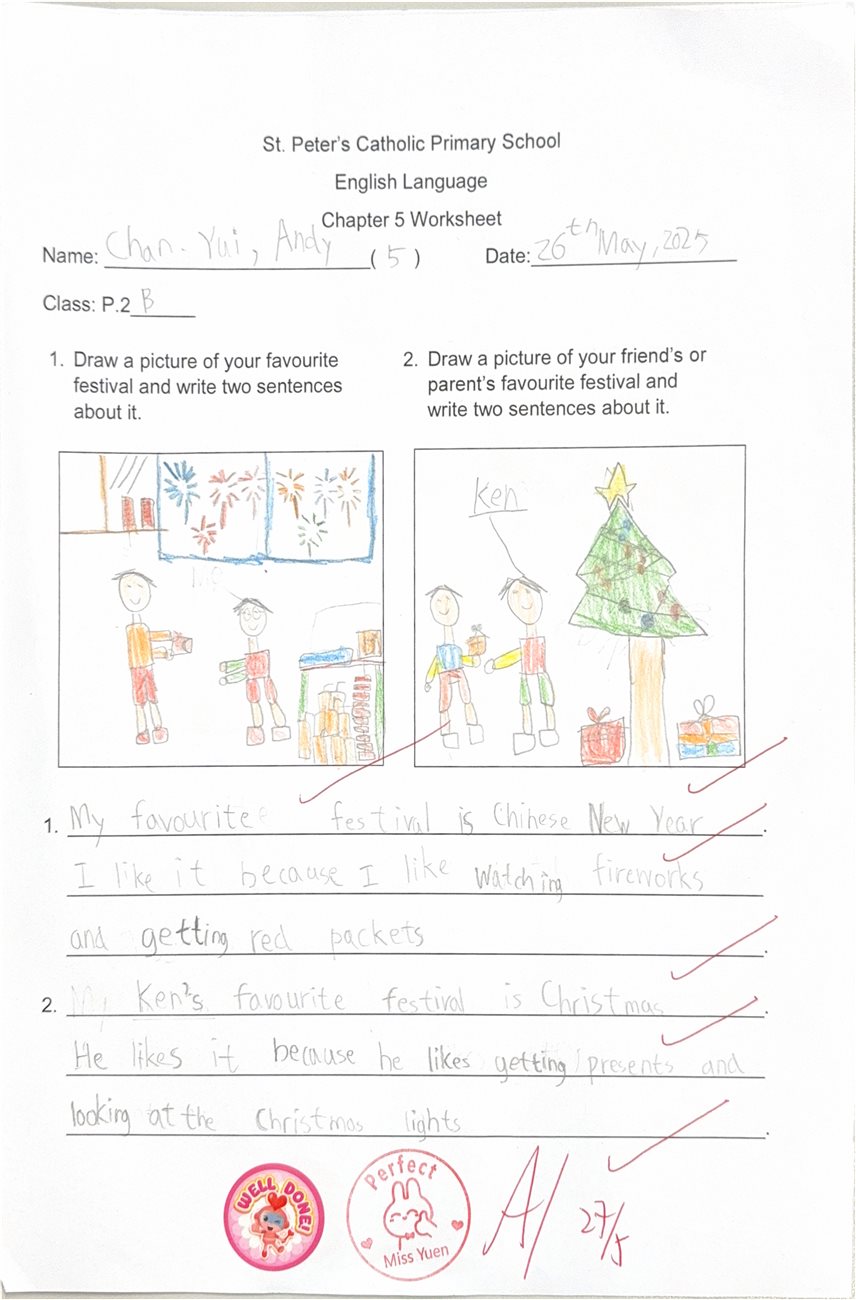 St. Peter's Catholic Primary School
English Language
Chapter 5 Worksheet
Name: Chan. Yui, Andy ( 5 ) Date: 26th May, 2025
Class: P.2 B
1. Draw a picture of your favourite
festival and write two sentences
about it.
2. Draw a picture of your friend's or
parent's favourite festival and
write two sentences about it.
Me
Ken
1. My favourite festival is Chinese New Year.
I like it because I like watching fireworks
and getting red packets.
2. Ken's favourite festival is Christmas.
He likes it because he likes getting presents and
looking at the Christmas lights.
WELL DONE!
Perfect
Miss Yuen
A/
27/5